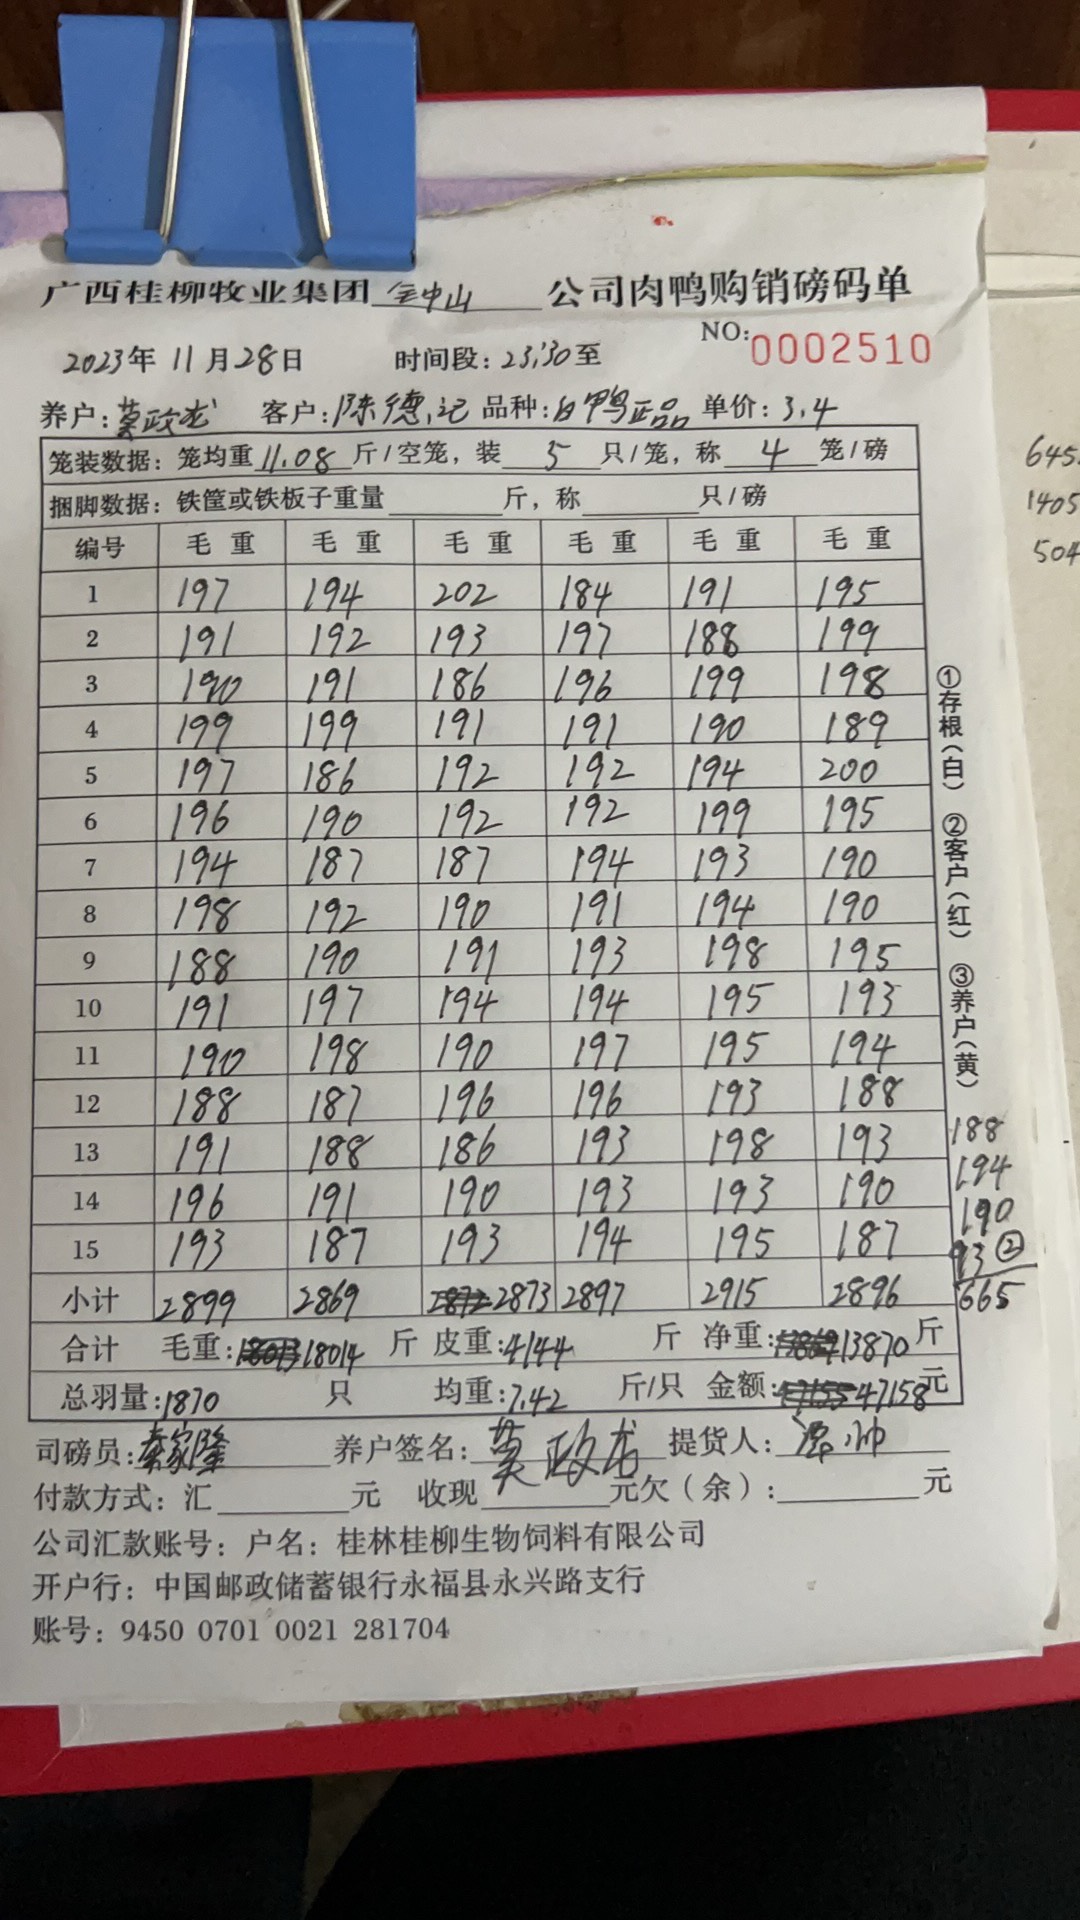 广西桂柳牧业集团 金中山 公司肉鸭购销磅码单
NO: 0002510
2023年 11月28日 时间段: 23:30至
养户: 莫政龙 客户: 陈德记 品种: 白鸭正品 单价: 3.4
笼装数据: 笼均重 11.08 斤/空笼, 装 5 只/笼, 称 4 笼/磅
捆脚数据: 铁筐或铁板子重量 斤, 称 只/磅
编号 毛重 毛重 毛重 毛重 毛重 毛重
1 197 194 202 184 191 195
2 191 192 193 197 188 199
3 190 191 186 196 199 198
4 199 199 191 191 190 189
5 197 186 192 192 194 200
6 196 190 192 192 199 195
7 194 187 187 194 193 190
8 198 192 190 191 194 190
9 188 190 191 193 198 195
10 191 197 194 194 195 193
11 190 198 190 197 195 194
12 188 187 196 196 193 188
13 191 188 186 193 198 193
14 196 191 190 193 193 190
15 193 187 193 194 195 187
小计 2899 2869 2873 2897 2915 2896
合计 毛重: 18014 斤 皮重: 4144 斤 净重: 13870 斤
总羽量: 1870 只 均重: 7.42 斤/只 金额: 47158元
司磅员: 家隆 养户签名: 莫政龙 提货人:
付款方式: 汇 元 收现 元欠(余): 元
公司汇款账号: 户名: 桂林桂柳生物饲料有限公司
开户行: 中国邮政储蓄银行永福县永兴路支行
账号: 9450 0701 0021 281704
①存根(白) ②客户(红) ③养户(黄)
188
194
190
93②
665
645
1405
504